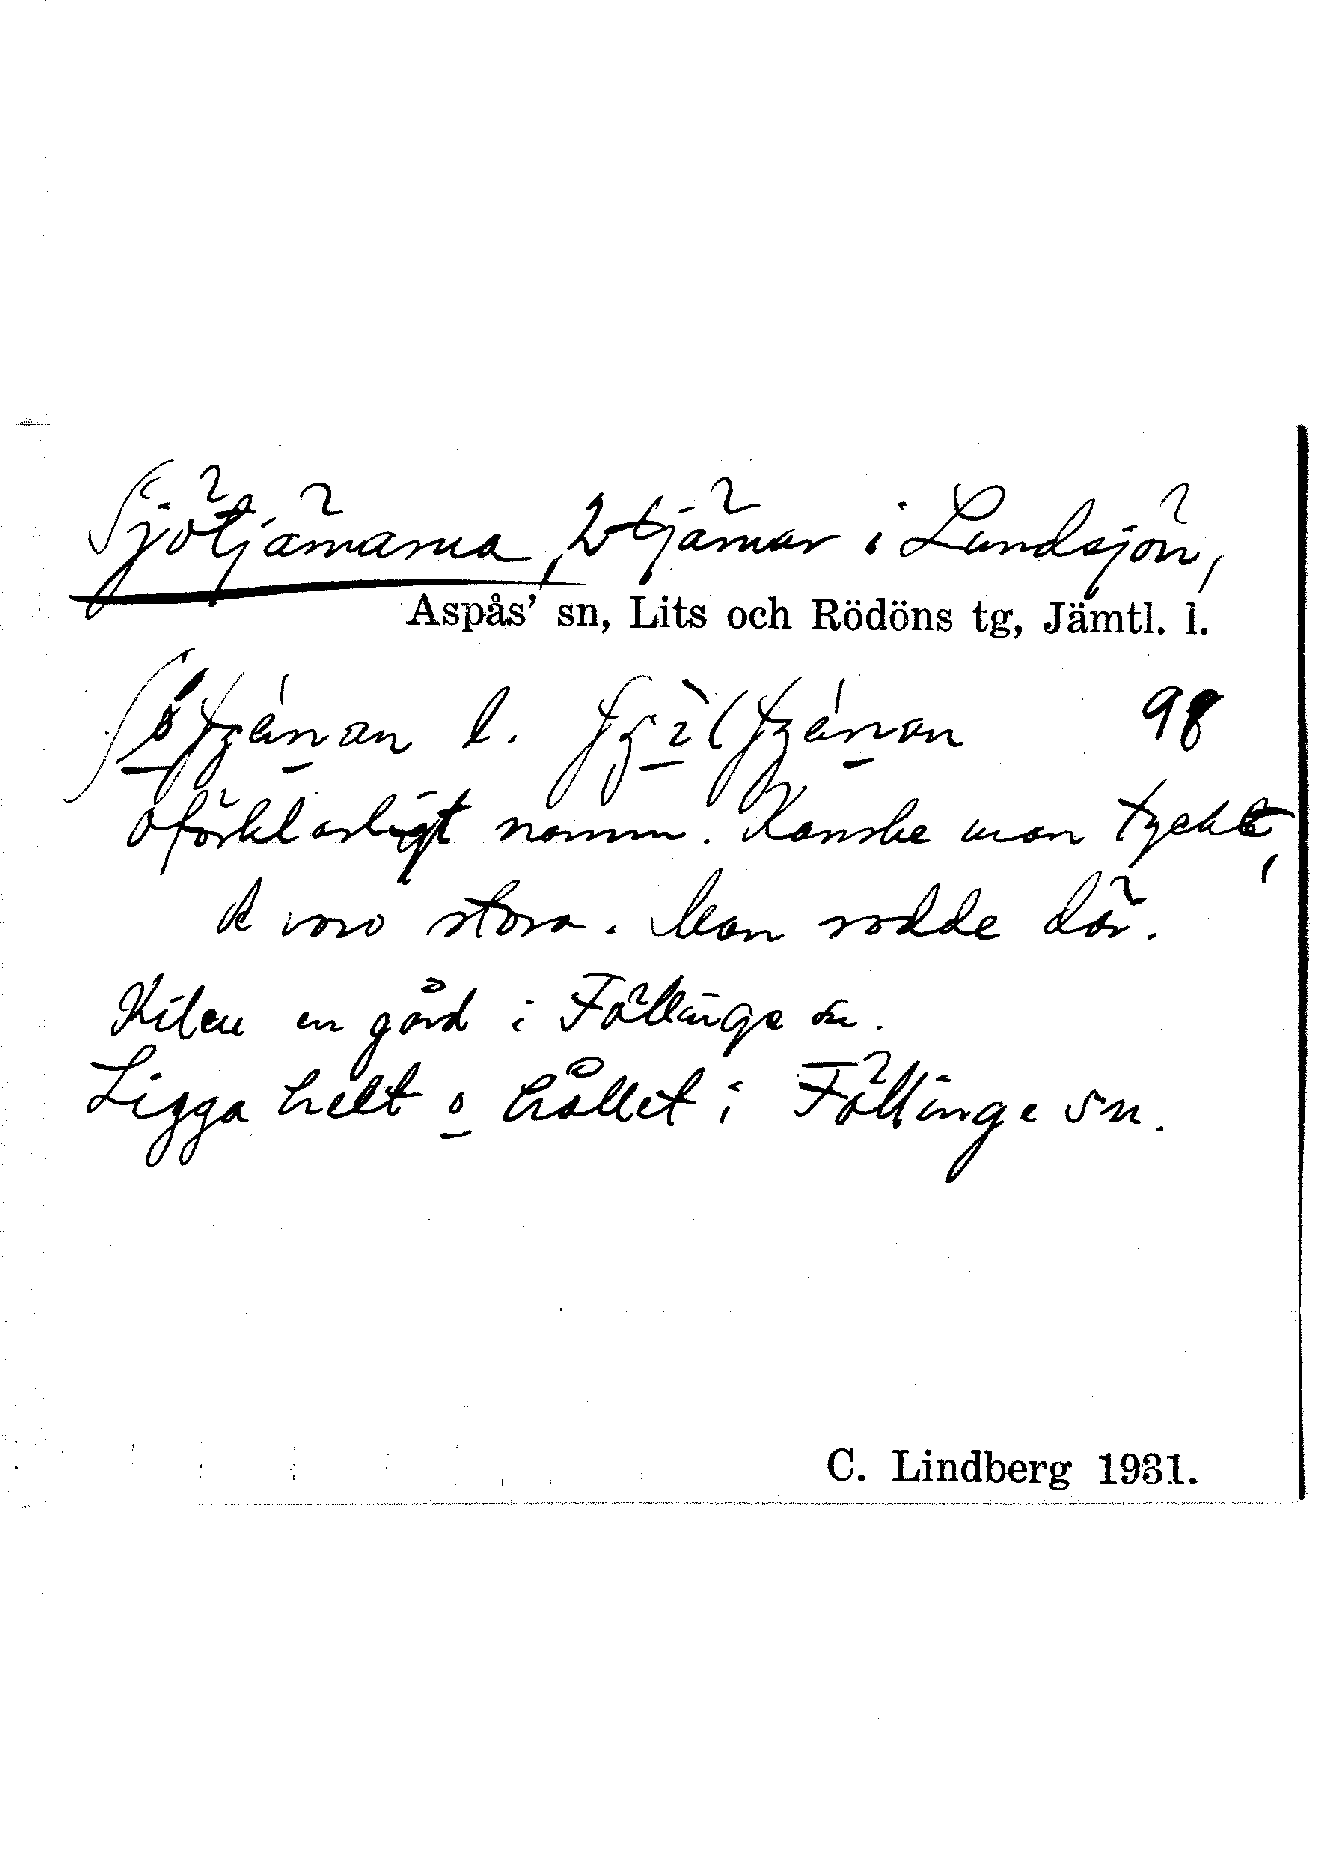 Sjötjärnarna, 2 tjärnar i Lundsjön,
Aspås' sn, Lits och Rödöns tg, Jämtl. l.
l. 98
Oförklarligt namn. Kanske man tyckte,
de voro stora. Man rodde där.
Kilen en gård i Föllinge sn.
Ligga helt o hållet i Föllinge sn.
C. Lindberg 1931.